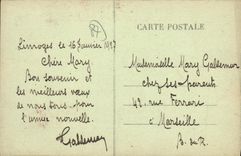 CARTE POSTALE
Limoges le 16 Janvier 1927
Chère Mary
Bon souvenir et
les meilleurs vœux
de nous tous pour
l'année nouvelle.
Mademoiselle Mary
chez ses parents
42 rue Ferrari
à Marseille
B. du R.